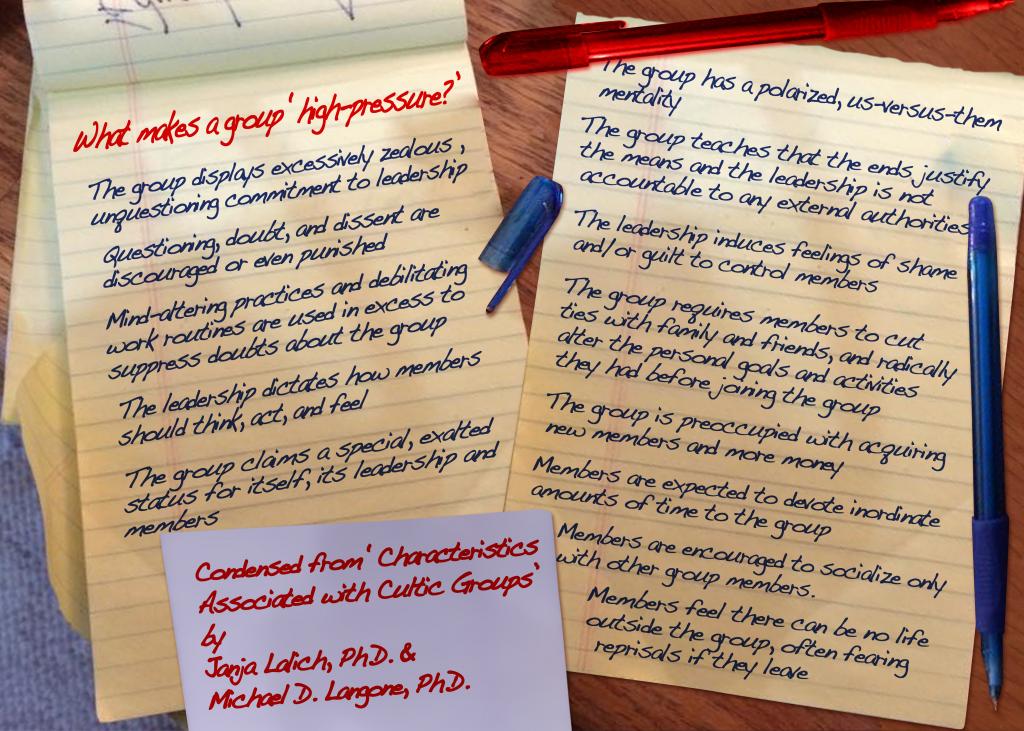 What makes a group 'high-pressure?'
The group displays excessively zealous ,
unquestioning commitment to leadership
Questioning, doubt, and dissent are
discouraged or even punished
Mind-altering practices and debilitating
work routines are used in excess to
suppress doubts about the group
The leadership dictates how members
should think, act, and feel
The group claims a special, exalted
status for itself, its leadership and
members
Condensed from ' Characteristics
Associated with Cultic Groups'
by
Janja Lalich, PhD. &
Michael D. Langone, PhD.
The group has a polarized, us-versus-them
mentality
The group teaches that the ends justify
the means and the leadership is not
accountable to any external authorities
The leadership induces feelings of shame
and/or guilt to control members
The group requires members to cut
ties with family and friends, and radically
alter the personal goals and activities
they had before joining the group
The group is preoccupied with acquiring
new members and more money
Members are expected to devote inordinate
amounts of time to the group
Members are encouraged to socialize only
with other group members.
Members feel there can be no life
outside the group, often fearing
reprisals if they leave